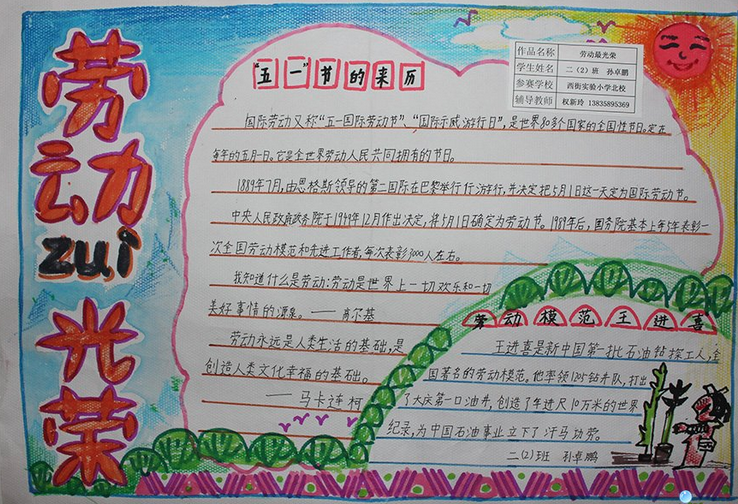 劳动zui光荣
作品名称 劳动最光荣
学生姓名 二(2)班 孙卓鹏
参赛学校 西街实验小学北校
辅导教师 权新玲 13835895369
"五一"节的来历
国际劳动又称"五一国际劳动节"、"国际示威游行日",是世界80多个国家的全国性节日。定在
每年的五月一日。它是全世界劳动人民共同拥有的节日。
1889年7月,由恩格斯领导的第二国际在巴黎举行行游行,并决定把5月1日这一天定为国际劳动节。
中央人民政府政务院于1949年12月作出决定,将5月1日确定为劳动节。1989年后,国务院基本上每5年表彰一
次全国劳动模范和先进工作者,每次表彰3000人左右。
我知道什么是劳动:劳动是世界上一切欢乐和一切
美好事情的源泉。——高尔基
劳动永远是人类生活的基础,是
创造人类文化幸福的基础。
——马卡连柯
劳动模范王进喜
王进喜是新中国第一批石油钻探工人,全
国著名的劳动模范。他率领1205钻井队,打出
了大庆第一口油井,创造了年进尺10万米的世界
纪录,为中国石油事业立下了汗马功劳。
二(2)班 孙卓鹏